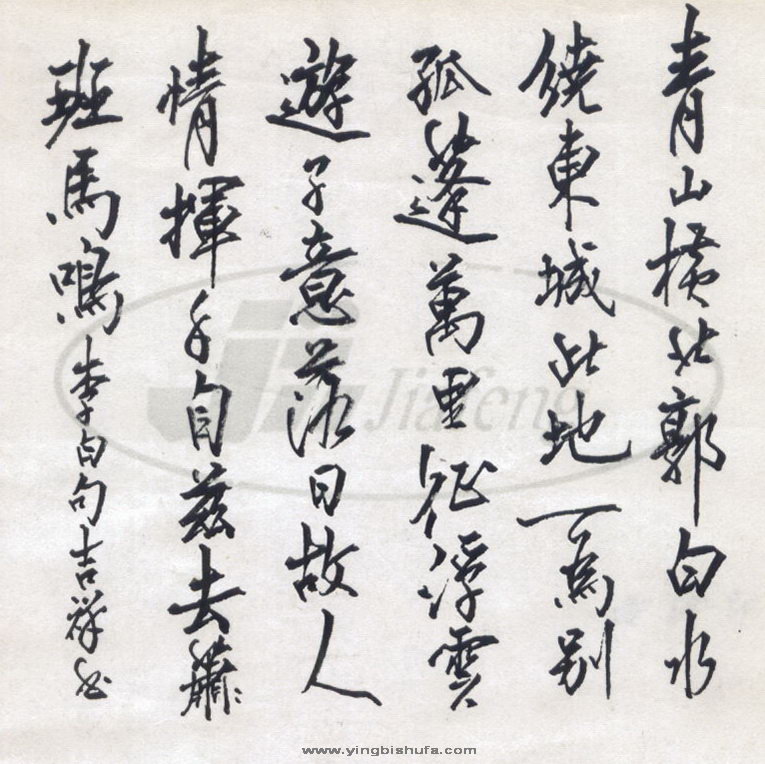 青山橫北郭白水
繞東城此地一為別
孤蓬萬里征浮雲
遊子意落日故人
情揮手自茲去蕭〻
班馬鳴李白句吉祥書
Jiafeng
www.yingbishufa.com